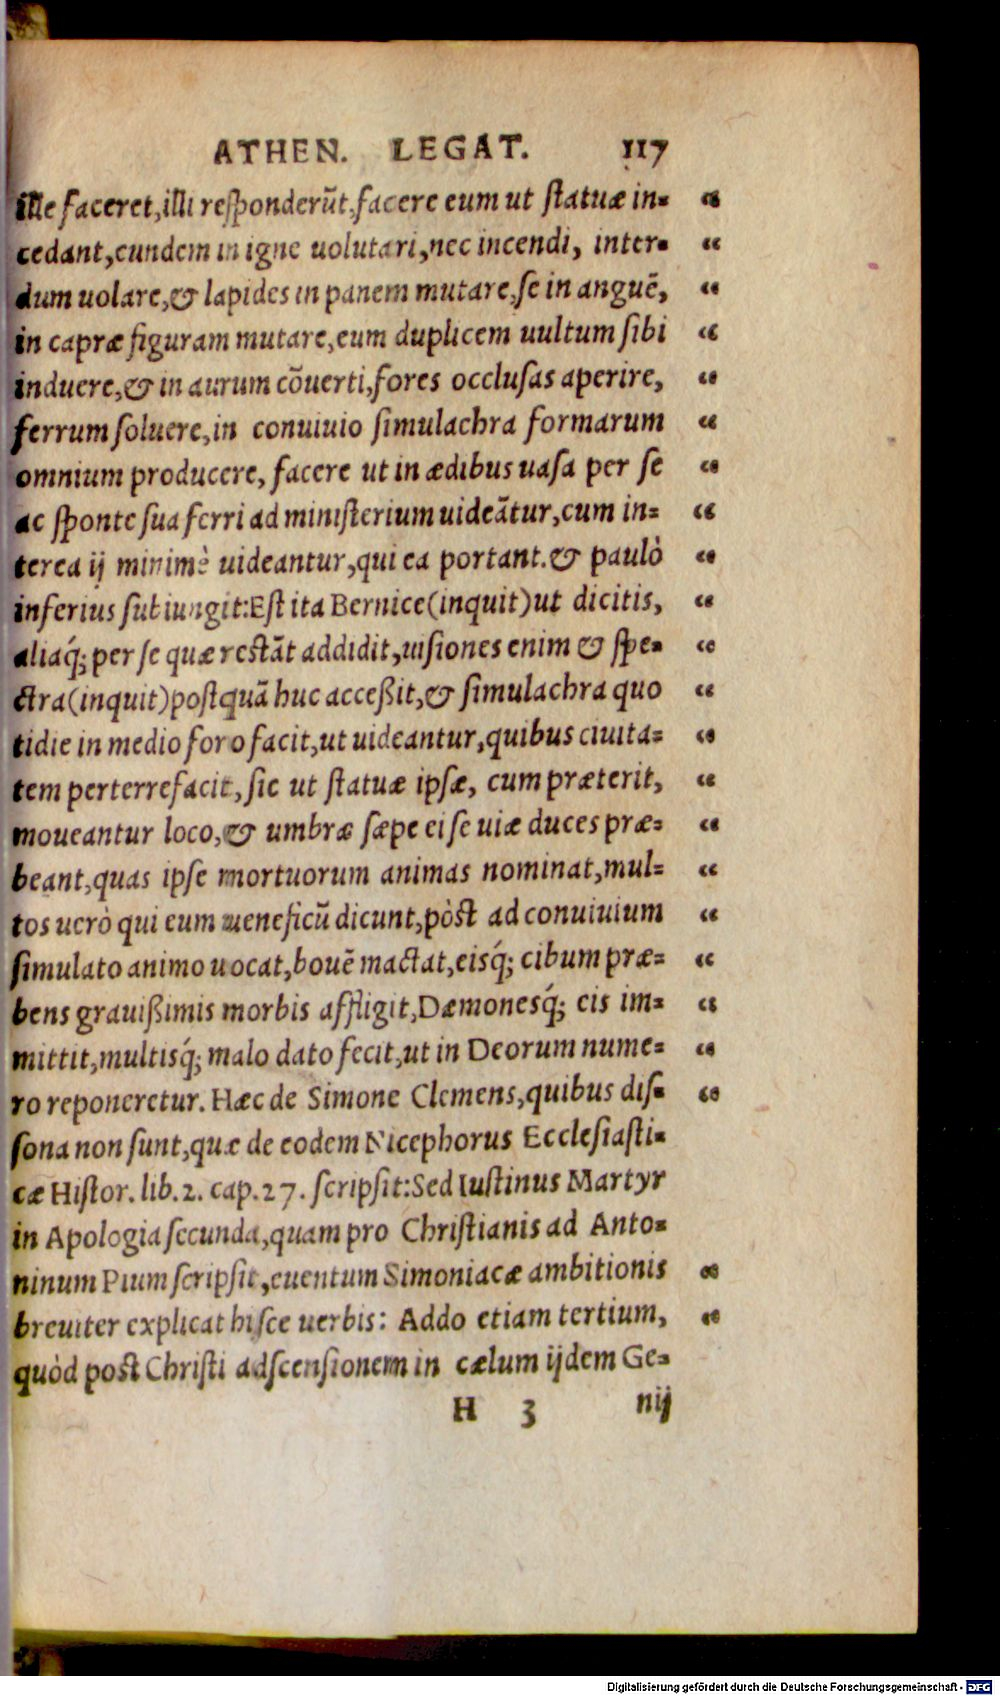 ATHEN. LEGAT. 117
ille faceret,illi responderũt,facere eum ut statuæ in= “
cedant,eundem in igne uolutari,nec incendi, inter= “
dum uolare,& lapides in panem mutare,se in anguẽ, “
in capræ figuram mutare,eum duplicem uultum sibi “
induere,& in aurum cõuerti,fores occlusas aperire, “
ferrum soluere,in conuiuio simulachra formarum “
omnium producere, facere ut in ædibus uasa per se “
ac sponte sua ferri ad ministerium uideãtur,cum in= “
terea ij minimè uideantur,qui ea portant.& paulò “
inferius subiungit:Est ita Bernice(inquit)ut dicitis, “
aliaq́; per se quæ restãt addidit,uisiones enim & spe= “
ctra(inquit)postquã huc acceßit,& simulachra quo “
tidie in medio foro facit,ut uideantur,quibus ciuita= “
tem perterrefacit, sic ut statuæ ipsæ, cum præterit, “
moueantur loco,& umbræ sæpe ei se uiæ duces præ= “
beant,quas ipse mortuorum animas nominat,mul= “
tos uerò qui eum ueneficũ dicunt,pòst ad conuiuium “
simulato animo uocat,bouẽ mactat,eisq́; cibum præ= “
bens grauißimis morbis affligit,Dæmonesq́; eis im= “
mittit,multisq́; malo dato fecit,ut in Deorum nume= “
ro reponeretur. Hæc de Simone Clemens,quibus dis= “
sona non sunt,quæ de eodem Nicephorus Ecclesiasti=
cæ Histor. lib. 2. cap. 27. scripsit:Sed Iustinus Martyr
in Apologia secunda,quam pro Christianis ad Anto=
ninum Pium scripsit,euentum Simoniacæ ambitionis “
breuiter explicat hisce uerbis: Addo etiam tertium, “
quòd post Christi adscensionem in cælum ijdem Ge=
H 3 nij
Digitalisierung gefördert durch die Deutsche Forschungsgemeinschaft - DFG